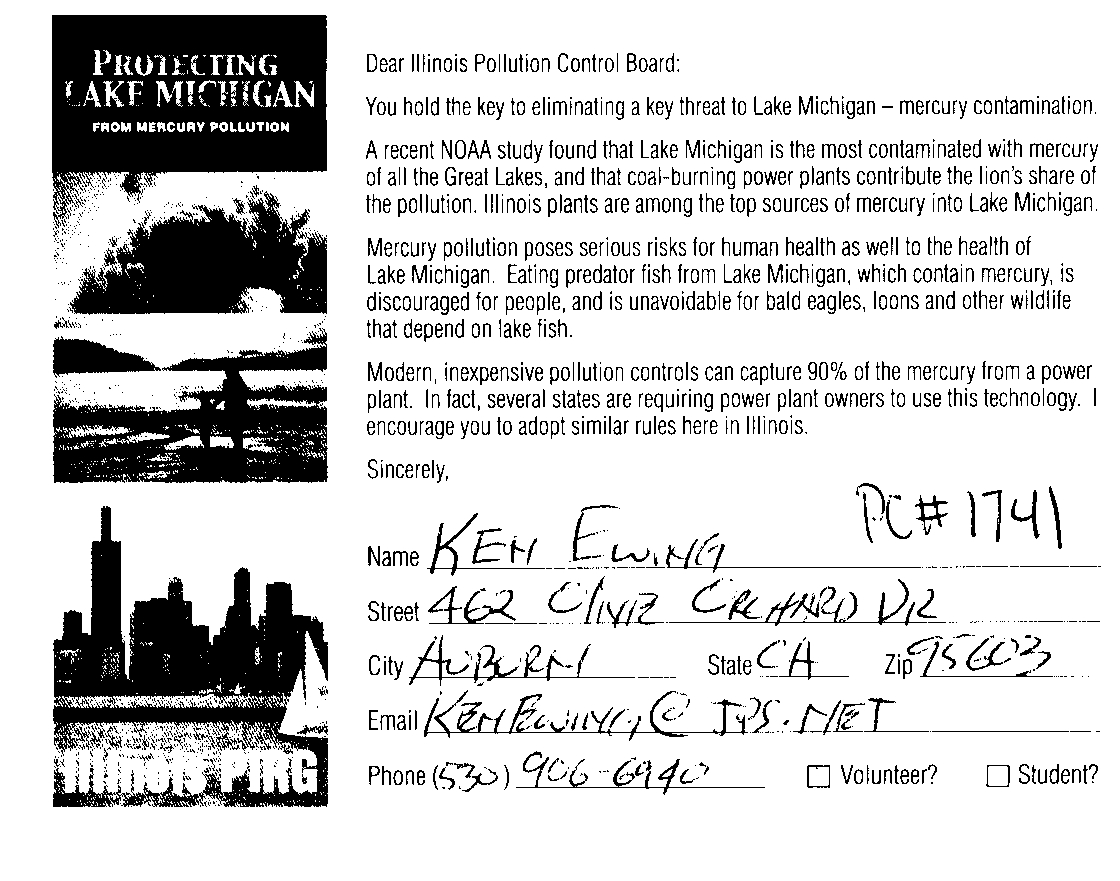 PROTECTING
LAKE MICHIGAN
FROM MERCURY POLLUTION
Illinois PIRG
Dear Illinois Pollution Control Board:
You hold the key to eliminating a key threat to Lake Michigan – mercury contamination.
A recent NOAA study found that Lake Michigan is the most contaminated with mercury
of all the Great Lakes, and that coal-burning power plants contribute the lion's share of
the pollution. Illinois plants are among the top sources of mercury into Lake Michigan.
Mercury pollution poses serious risks for human health as well to the health of
Lake Michigan. Eating predator fish from Lake Michigan, which contain mercury, is
discouraged for people, and is unavoidable for bald eagles, loons and other wildlife
that depend on lake fish.
Modern, inexpensive pollution controls can capture 90% of the mercury from a power
plant. In fact, several states are requiring power plant owners to use this technology. I
encourage you to adopt similar rules here in Illinois.
Sincerely,
PC# 1741
Name KEN EWING
Street 462 OLIVE ORCHARD DR
City AUBURN State CA Zip 95603
Email KENEWING@JPS.NET
Phone (530) 906-6940 Volunteer? Student?